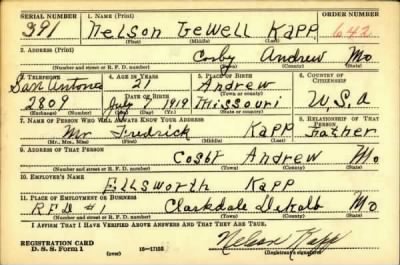 SERIAL NUMBER 1. NAME (Print) ORDER NUMBER
391 Nelson Jewell Kapp 642
(First) (Middle) (Last)
2. ADDRESS (Print)
Cosby Andrew Mo
(Number and street or R. F. D. number) (Town) (County) (State)
3. TELEPHONE 4. AGE IN YEARS 5. PLACE OF BIRTH 6. COUNTRY OF CITIZENSHIP
San Antonio 21 Andrew
DATE OF BIRTH (Town or county)
2809 July 7 1919 Missouri U.S.A
(Exchange) (Number) (Mo.) (Day) (Yr.) (State or country)
7. NAME OF PERSON WHO WILL ALWAYS KNOW YOUR ADDRESS 8. RELATIONSHIP OF THAT PERSON
Mr Fredrick Kapp Father
(Mr., Mrs., Miss) (First) (Middle) (Last)
9. ADDRESS OF THAT PERSON
Cosby Andrew Mo
(Number and street or R. F. D. number) (Town) (County) (State)
10. EMPLOYER'S NAME
Ellsworth Kapp
11. PLACE OF EMPLOYMENT OR BUSINESS
RFD #1 Clarkdale Dekalb Mo
(Number and street or R. F. D. number) (Town) (County) (State)
I AFFIRM THAT I HAVE VERIFIED ABOVE ANSWERS AND THAT THEY ARE TRUE.
REGISTRATION CARD
D. S. S. Form 1 (over) 16-17105 Nelson Kapp
(Registrant's signature)